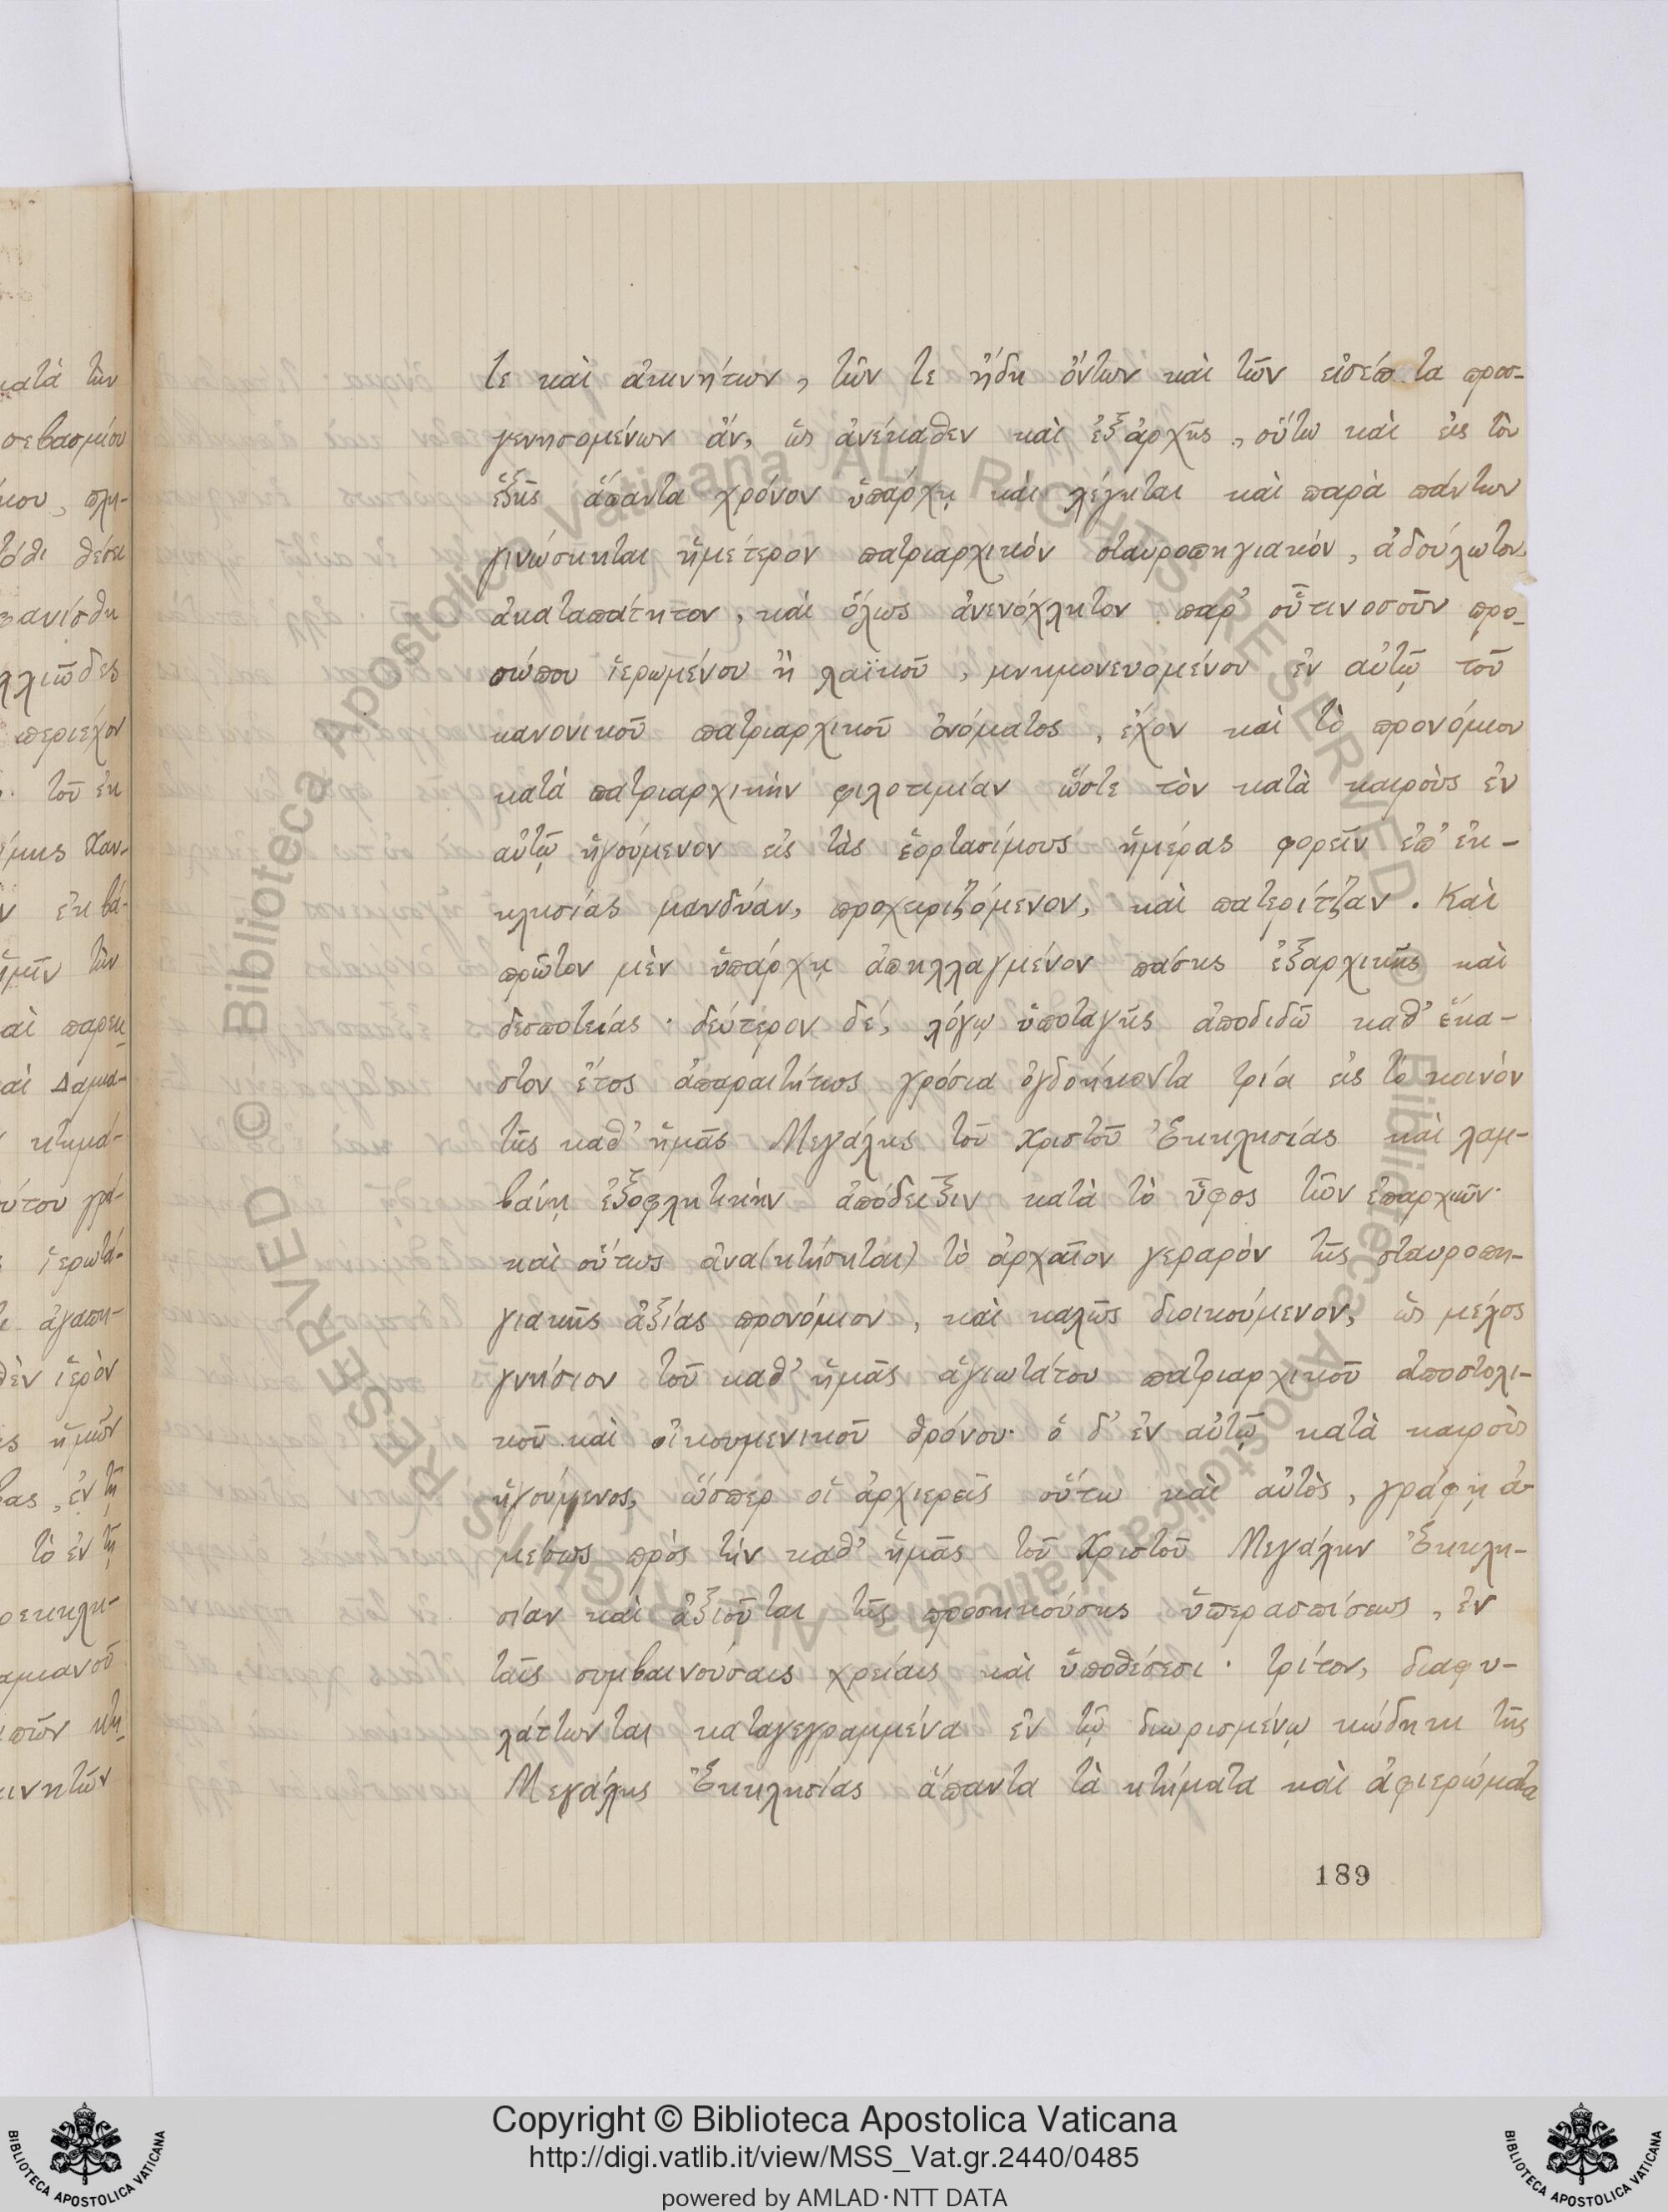 τε καὶ ἀκινήτων, τῶν τε ἤδη ὄντων καὶ τῶν εἰσέπ τα προσ-
γενησομένων ἄν, ὡς ἀνέκαθεν καὶ ἐξἀρχῆς, οὕτω καὶ εἰς τὸν
ἑξῆς ἅπαντα χρόνον ὑπάρχῃ καὶ λέγηται καὶ παρὰ πάντων
γινώσκηται ἡμέτερον πατριαρχικόν σταυροπηγιακόν, ἀδούλωτον,
ἀκαταπάτητον, καὶ ὅλως ἀνενόχλητον παρ' οὗτινοσοῦν προ-
σώπου ἱερωμένου ἢ λαϊκοῦ, μνημονευομένου ἐν αὐτῷ τοῦ
κανονικοῦ πατριαρχικοῦ ὀνόματος, ἔχον καὶ τὸ προνόμιον
κατά πατριαρχικήν φιλοτιμίαν ὥστε τὸν κατὰ καιροὺς ἐν
αὐτῷ ἡγούμενον εἰς τὰς ἑορτασίμους ἡμέρας φορεῖν ἐπ' ἐκ-
κλησίας μανδύαν, προχειριζόμενον, καὶ πατερίτζαν. Καὶ
πρῶτον μὲν ὑπάρχῃ ἀπηλλαγμένον πάσης ἐξαρχικῆς καὶ
δεσποτείας· δεύτερον δέ, λόγῳ ὑποταγῆς ἀποδιδῶ καθ' ἕκα-
στον ἔτος ἀπαραιτήτως γρόσια ὀγδοήκοντα τρία εἰς τὸ κοινόν
τῆς καθ' ἡμᾶς Μεγάλης τοῦ Χριστοῦ Ἐκκλησίας καὶ λαμ-
βάνῃ ἐξοφλητικὴν ἀπόδειξιν κατὰ τὸ ὕφος τῶν ἐπαρχιῶν·
καὶ οὕτως ἀνα(κτήσηται) τὸ ἀρχαῖον γεραρόν τῆς σταυροπη-
γιακῆς ἀξίας προνόμιον, καὶ καλῶς διοικούμενον, ὡς μέλος
γνήσιον τοῦ καθ' ἡμᾶς ἁγιωτάτου πατριαρχικοῦ ἀποστολι-
κοῦ καὶ οἰκουμενικοῦ θρόνου· ὁ δ' ἐν αὐτῷ κατὰ καιροὺς
ἡγούμενος, ὥσπερ οἱ ἀρχιερεῖς οὕτω καὶ αὐτὸς, γράφῃ ἀ-
μέσως πρὸς τὴν καθ' ἡμᾶς τοῦ Χριστοῦ Μεγάλην Ἐκκλη-
σίαν καὶ ἀξιοῦται τῆς προσηκούσης ὑπερασπίσεως, ἐν
ταῖς συμβαινούσαις χρείαις καὶ ὑποθέσεσι· τρίτον, διαφυ-
λάττωνται καταγεγραμμένα ἐν τῷ διωρισμένῳ κώδηκι τῆς
Μεγάλης Ἐκκλησίας ἅπαντα τὰ κτήματα καὶ ἀφιερώματα
189
Copyright © Biblioteca Apostolica Vaticana
http://digi.vatlib.it/view/MSS_Vat.gr.2440/0485
powered by AMLAD·NTT DATA